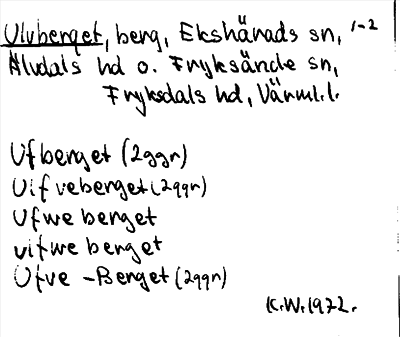 Ulvberget, berg, Ekshärads sn, 1-2
Älvdals hd o. Fryksände sn,
Fryksdals hd, Värml.l.
Ufberget (2ggr)
Uifveberget (2ggr)
Ufwe berget
uifwe berget
Ufve - Berget (2ggr)
K.W. 1972.